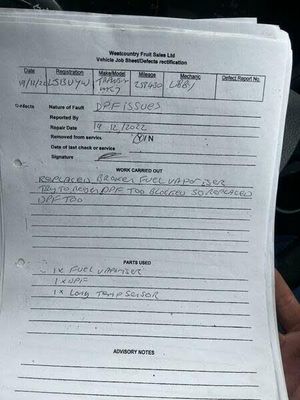 Westcountry Fruit Sales Ltd
Vehicle Job Sheet/Defects rectification
Date Registration Make/Model Mileage Mechanic Defect Report No.
19/12/22 TRANSIT
Defects Nature of Fault DPF ISSUES
Reported By
Repair Date 19 12/2022
Removed from service Y/N
Date of last check or service
Signature
WORK CARRIED OUT
REPLACED BROKEN FUEL VAPORISER
TRY TO REGEN DPF TOO BLOCKED SO REPLACED
DPF TOO
PARTS USED
1x FUEL VAPORISER
1x DPF
1x Long TEMP SENSOR
ADVISORY NOTES